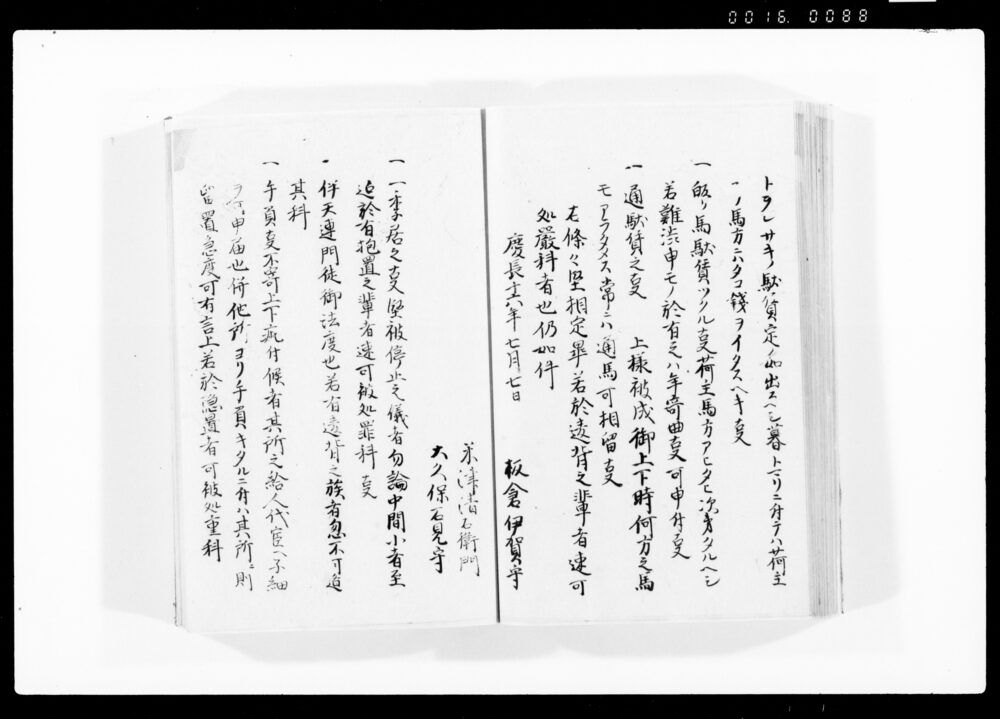 0016. 0088
トヲレサキノ駄賃定如出スヘシ暮トマリニ付テハ荷主
ノ馬方ニハタコ銭ヲイタスヘキ叓
一 皈リ馬駄賃ツクル叓荷主馬方アヒタヒ次第タルヘシ
若難渋申モノ於有之ハ年寄曲叓可申付叓
一 通駄賃之叓 上様被成御上下時何方之馬
モアラタメス常ニハ通馬可相留叓
右條々堅相定畢若於違背之輩者速可
処嚴科者也仍如件
慶長十六年七月七日
板倉伊賀守
米津清右衛門
大久保石見守
一 一季居之叓堅被停止之儀者勿論中間小者至
迄於有抱置之輩者速可被処罪科叓
一 伴天連門徒御法度也若有違背之族者忽不可遁
其科
一 手負叓不寄上下疵付候者其所之給人代官へ子細
ヲ可申届也併他所ヨリ手負キタルニ付ハ其所ニ則
留置急度可有言上若於隠置者可被処重科